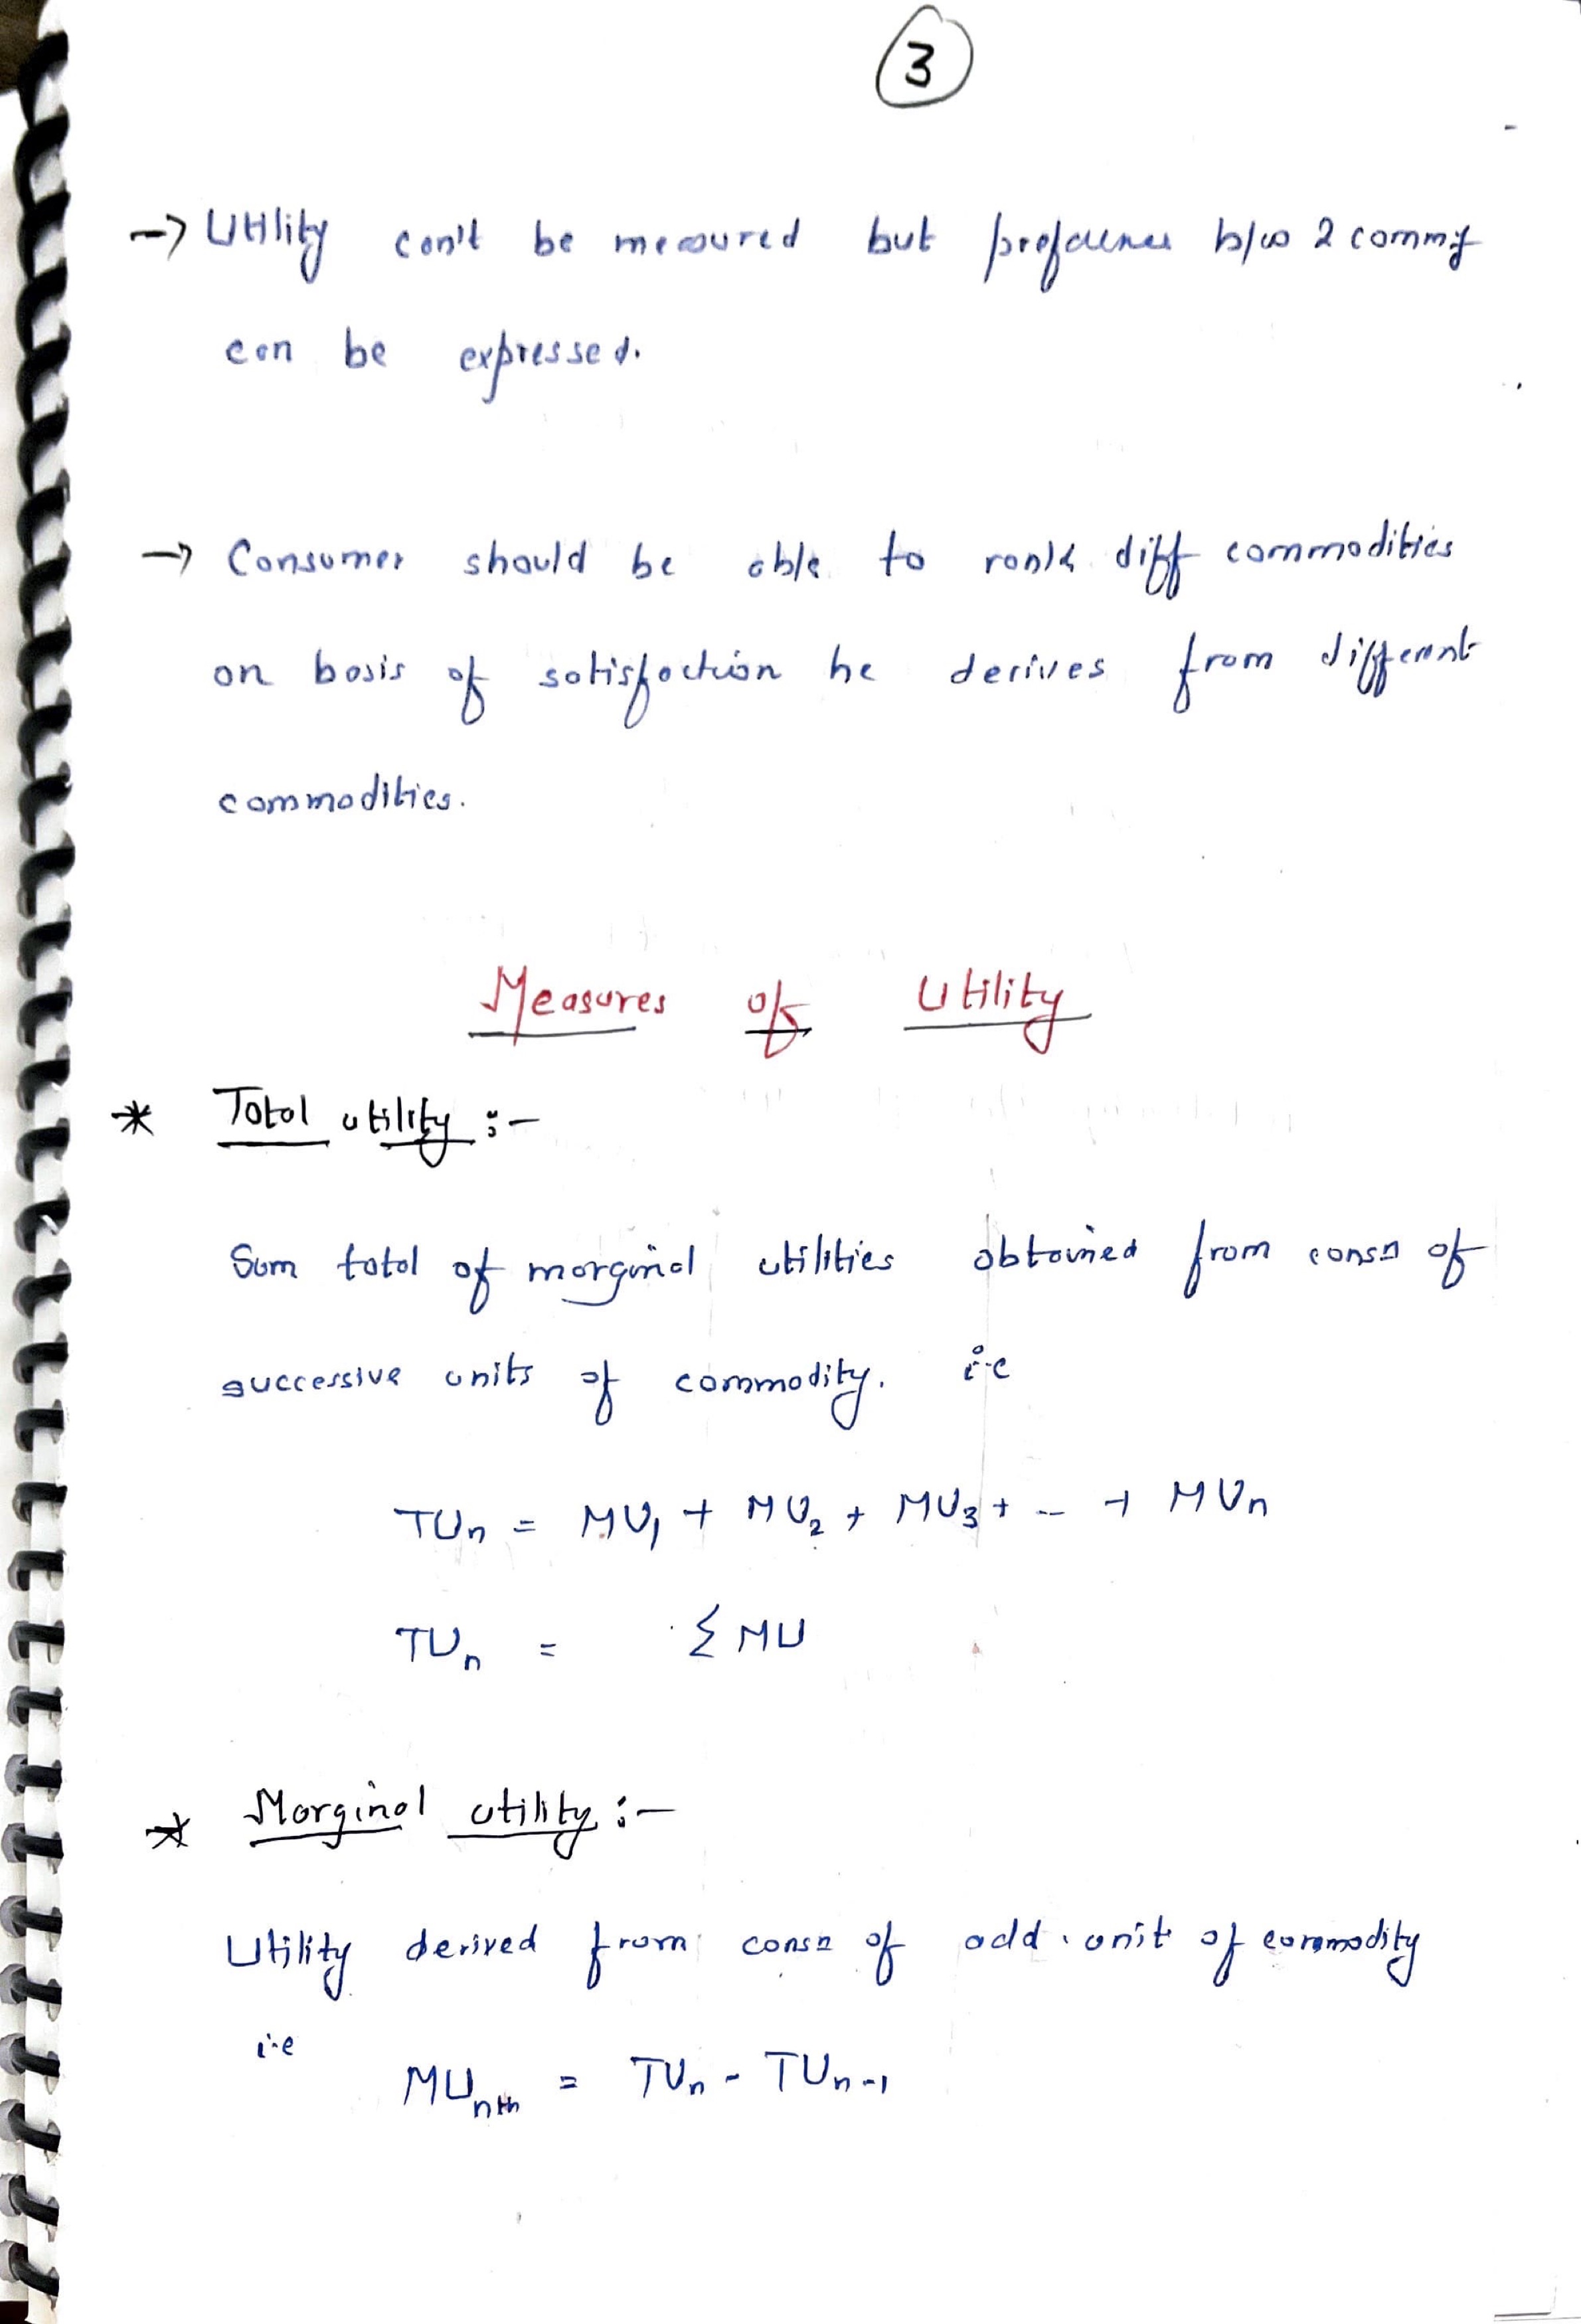 3
→ Utility can't be measured but preferences b/w 2 commy
can be expressed.
→ Consumer should be able to rank diff commodities
on basis of satisfaction he derives from different
commodities.
Measures of Utility
* Total utility :-
Sum total of marginal utilities obtained from consn of
successive units of commodity. i.e
TUn = MU1 + MU2 + MU3 + -- + MUn
TUn = Σ MU
* Marginal utility :-
Utility derived from consn of add. unit of commodity
i.e
MUnth = TUn - TUn-1